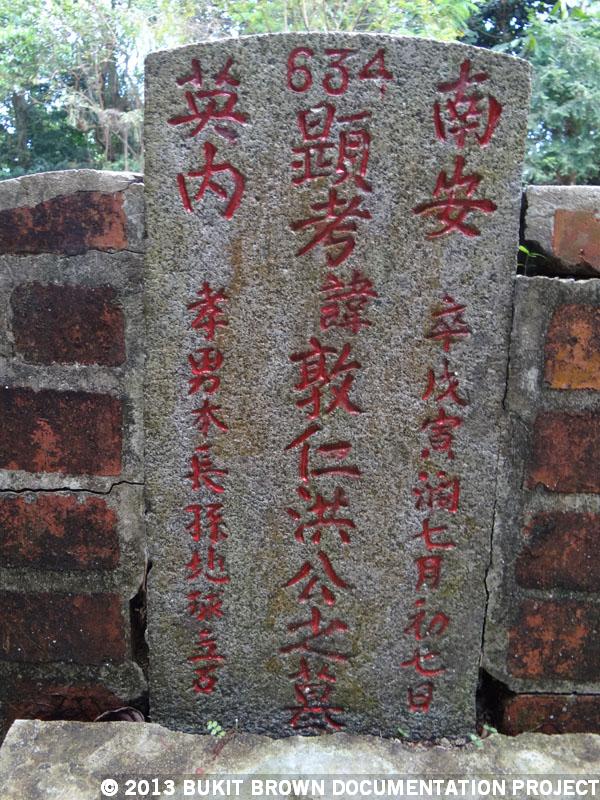 634
南安
卒戊寅潤七月初七日
顕考諱敦仁洪公之墓
英内
孝男木長孫地球立石
© 2013 BUKIT BROWN DOCUMENTATION PROJECT